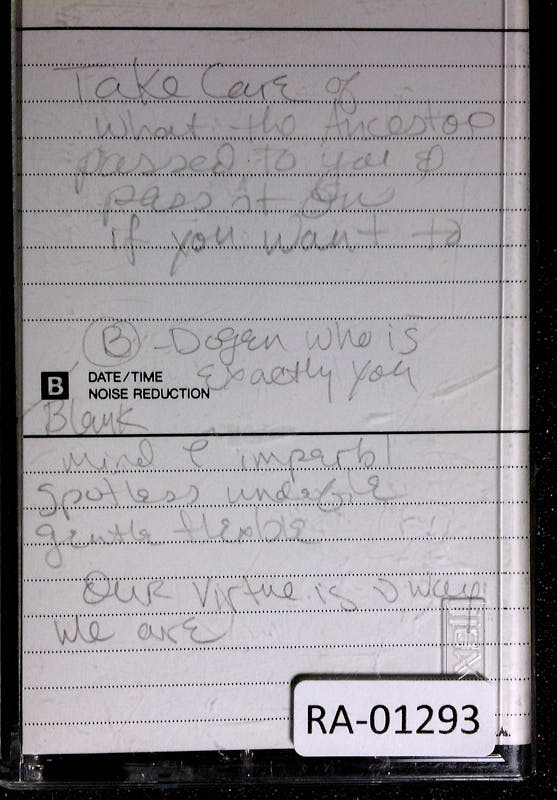 Take Care of
what the Ancestor
passed to you &
pass it On
if you want to
B - Dogen who is
exactly you
B DATE/TIME
NOISE REDUCTION
Blank
mind
spotless
gentle flexible
Our Virtue is
We are
RA-01293